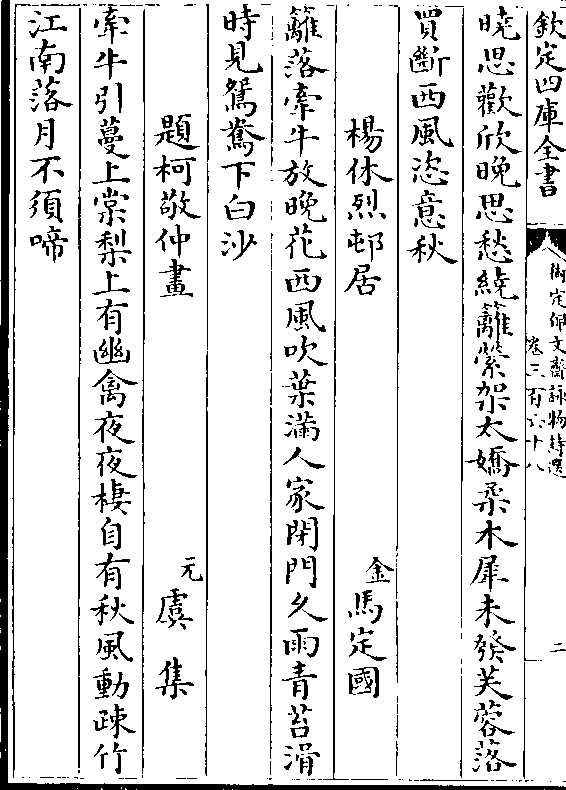 欽定四庫全書
御定佩文齋詠物詩選
卷三百六十八
二
曉思歡欣晚思愁繞籬縈架太嬌柔木犀未發芙蓉落
買斷西風恣意秋
楊休烈邨居
金
馬定國
籬落牽牛放晚花西風吹葉滿人家閉門久雨青苔滑
時見鴛鴦下白沙
題柯敬仲畫
元
虞集
牽牛引蔓上棠梨上有幽禽夜夜棲自有秋風動疎竹
江南落月不須啼